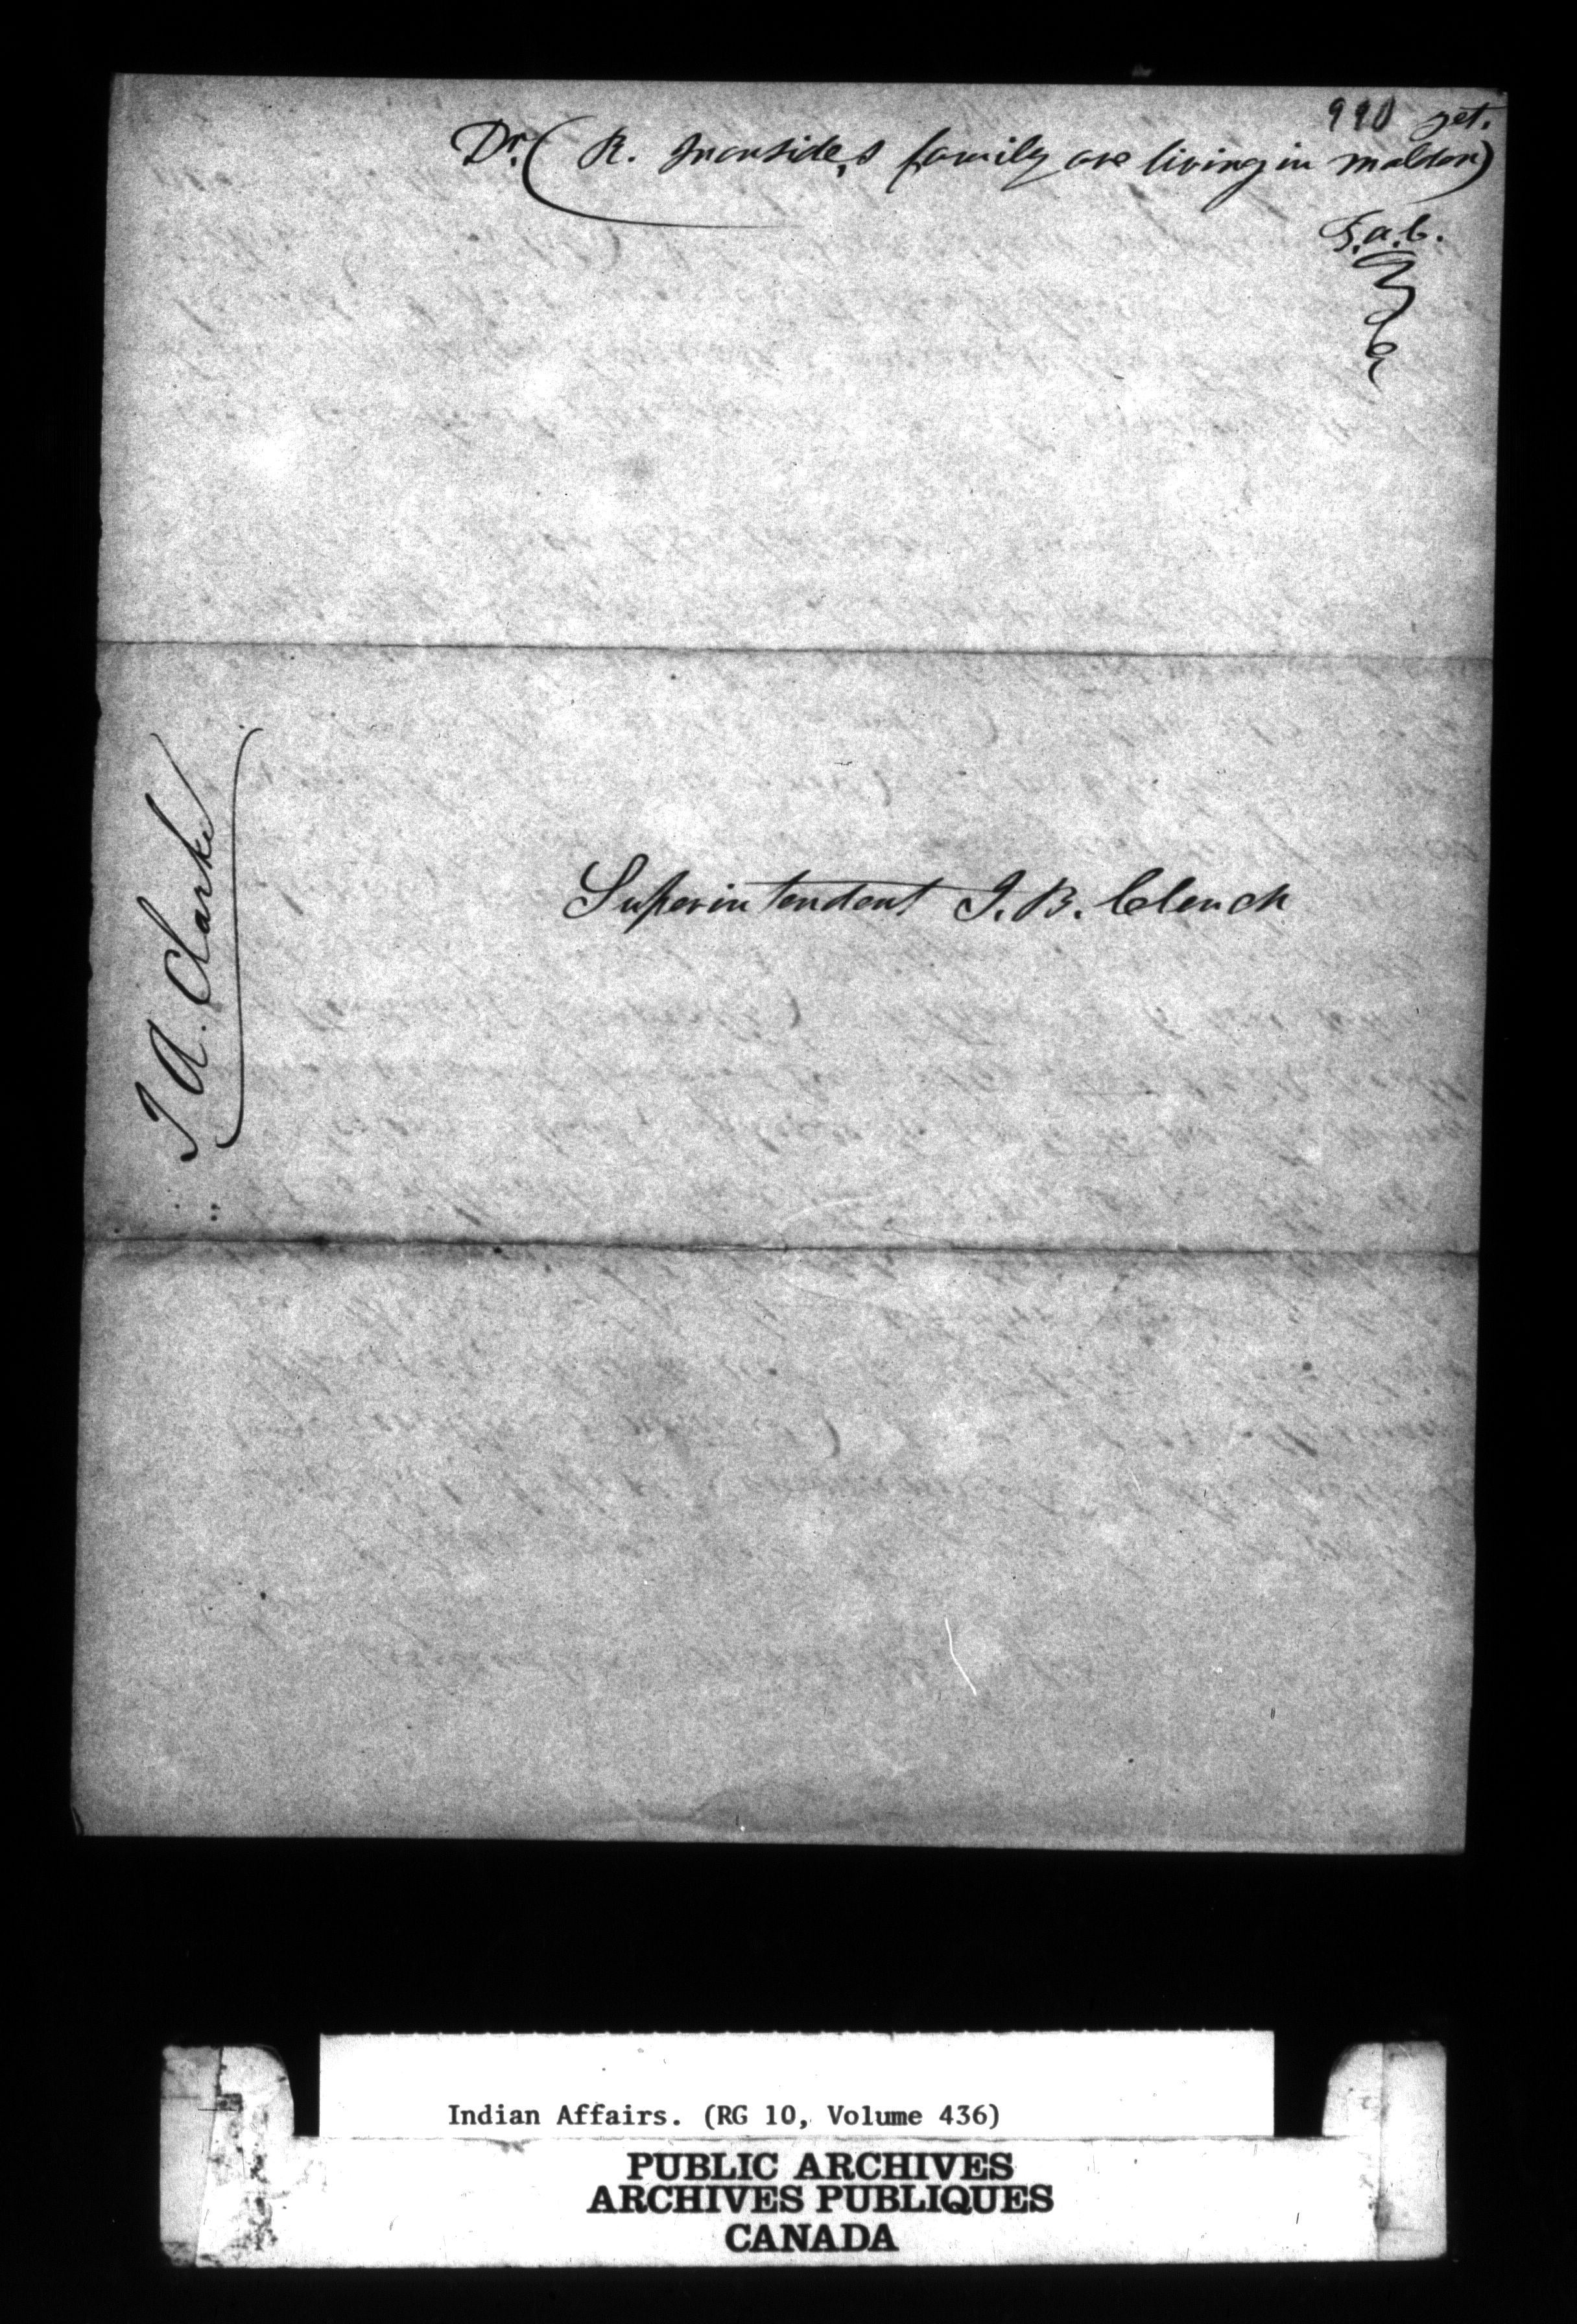 990 yet.
Dr. (R. Ironside,s family are living in malden)
T.a.C.
T A. Clarke
Superintendent J. B. Clench
Indian Affairs. (RG 10, Volume 436)
PUBLIC ARCHIVES
ARCHIVES PUBLIQUES
CANADA